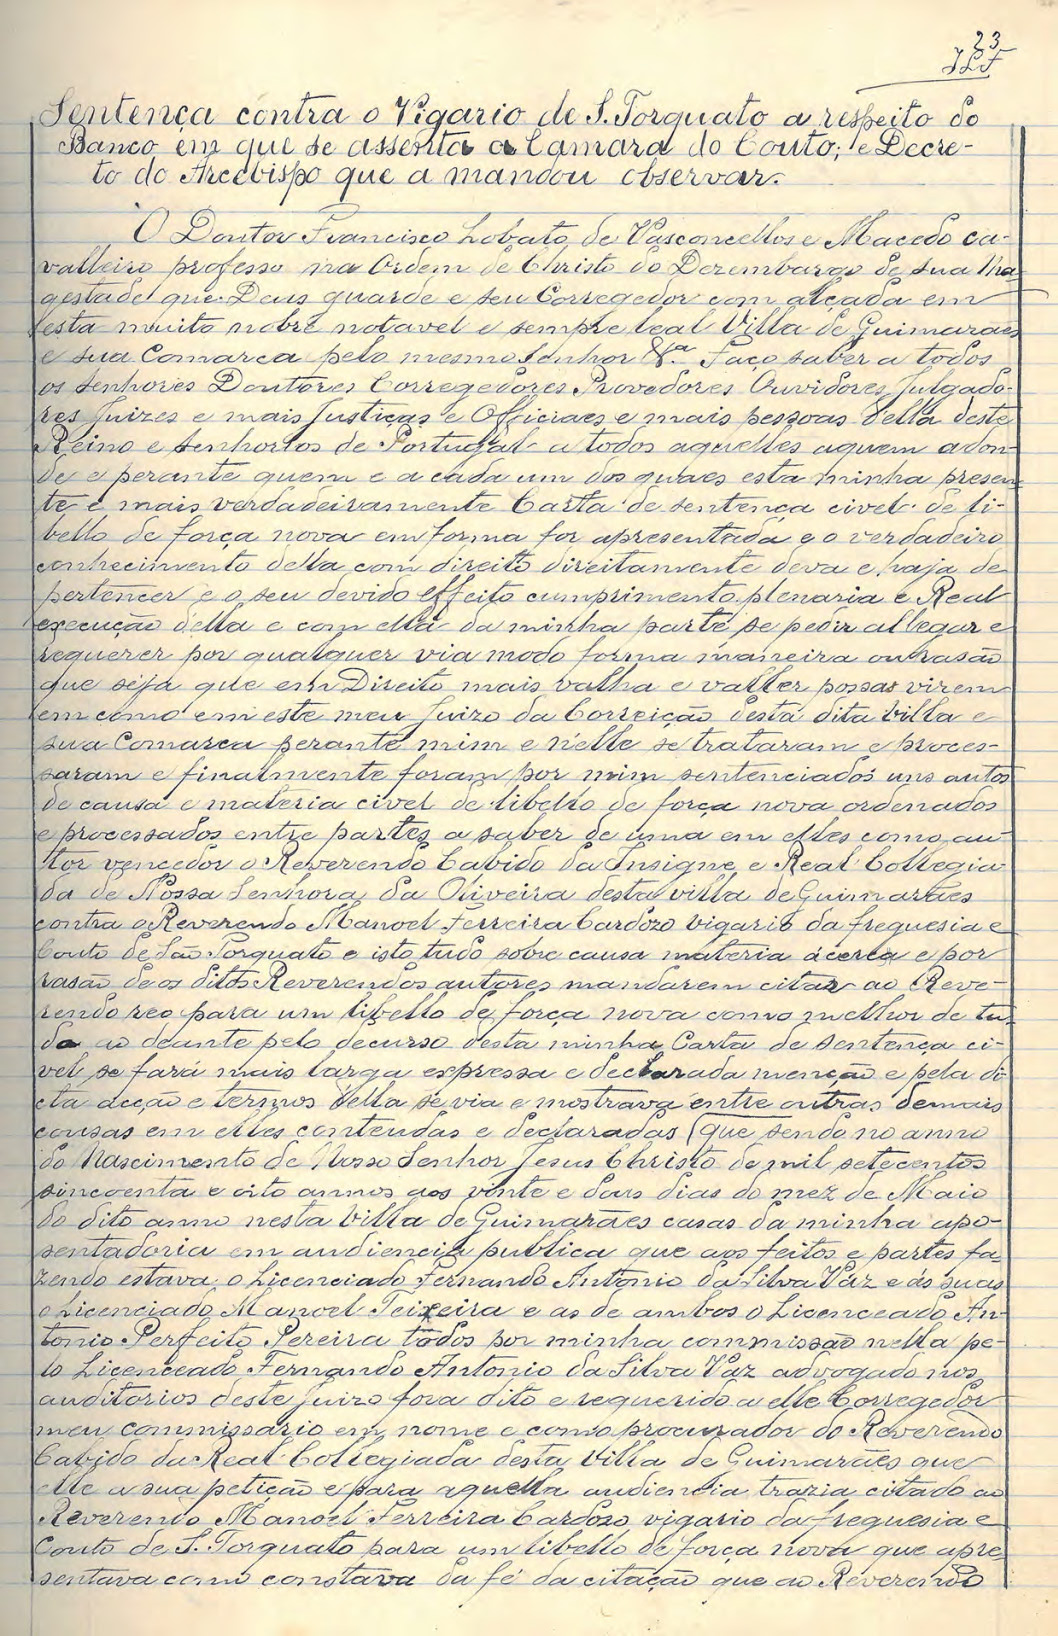 23
Sentença contra o Vigario de S. Torquato a respeito do
Banco em que se assenta a Camara do Couto; e Decre-
to do Arcebispo que a mandou observar.
O Doutor Francisco Lobato de Vasconcellos e Macedo ca-
valleiro professo na Ordem de Christo do Dezembargo de sua Ma-
gestade que Deus guarde e seu Corregedor com alçada em
esta muito nobre notavel e sempre leal Villa de Guimarães
e sua Comarca pelo mesmo Senhor &.ª Faço saber a todos
os Senhores Doutores Corregedores Provedores Ouvidores Julgado-
res Juizes e mais Justiças e Officiaes e mais pessoas della deste
Reino e Senhorios de Portugal a todos aquelles aquem adon-
de e perante quem e a cada um dos quaes esta minha presen-
te e mais verdadeiramente Carta de sentença civel de li-
bello de força nova em forma for apresentada e o verdadeiro
conhecimento della com direito direitamente deva e haja de
pertencer e o seu devido effeito cumprimento plenaria e Real
execução della e com ella da minha parte se pedir allegar e
requerer por qualquer via modo forma maneira ou rasão
que seja que em Direito mais valha e valler possas virem
em como em este meu Juizo da Correição desta dita Villa e
sua Comarca perante mim e n'elle se trataram e proces-
saram e finalmente foram por mim sentenciados uns autos
de causa e materia civel de libello de força nova ordenados
e processados entre partes a saber de uma em elles como au-
tor vencedor o Reverendo Cabido da Insigne e Real Collegia-
da de Nossa Senhora da Oliveira desta villa de Guimarães
contra o Reverendo Manoel Ferreira Cardozo vigario da freguesia e
Couto de São Torquato e isto tudo sobre causa materia ácerca e por
rasão de os ditos Reverendos autores mandarem citar ao Reve-
rendo reo para um libello de força nova como melhor de tu-
do ao deante pelo decurso desta minha Carta de sentença ci-
vel se fará mais larga expressa e declarada menção e pela di-
cta acção e termos della se via e mostrava entre outras demais
cousas em elles contendas e declaradas que sendo no anno
do Nascimento de Nosso Senhor Jesus Christo de mil setecentos
sincoenta e oito annos aos vinte e dous dias do mez de Maio
do dito anno nesta Villa de Guimarães casas da minha apo-
sentadoria em audiencia publica que aos feitos e partes fa-
zendo estava o Licenciado Fernando Antonio da Silva Vaz e ás suas
o Licenciado Manoel Teixeira e as de ambos o Licenceado An-
tonio Perfeito Pereira todos por minha commissão nella pe-
lo Licenceado Fernando Antonio da Silva Vaz advogado nos
auditorios deste Juizo fora dito e requerido a elle Corregedor
meu commissario em nome e como procurador do Reverendo
Cabido da Real Collegiada desta Villa de Guimarães que
elle a sua petição e para aquella audiencia trazia citado ao
Reverendo Manoel Ferreira Cardozo vigario da freguesia e
Couto de S. Torquato para um libello de força nova que apre-
sentava como constava da fé da citação que ao Reverendo